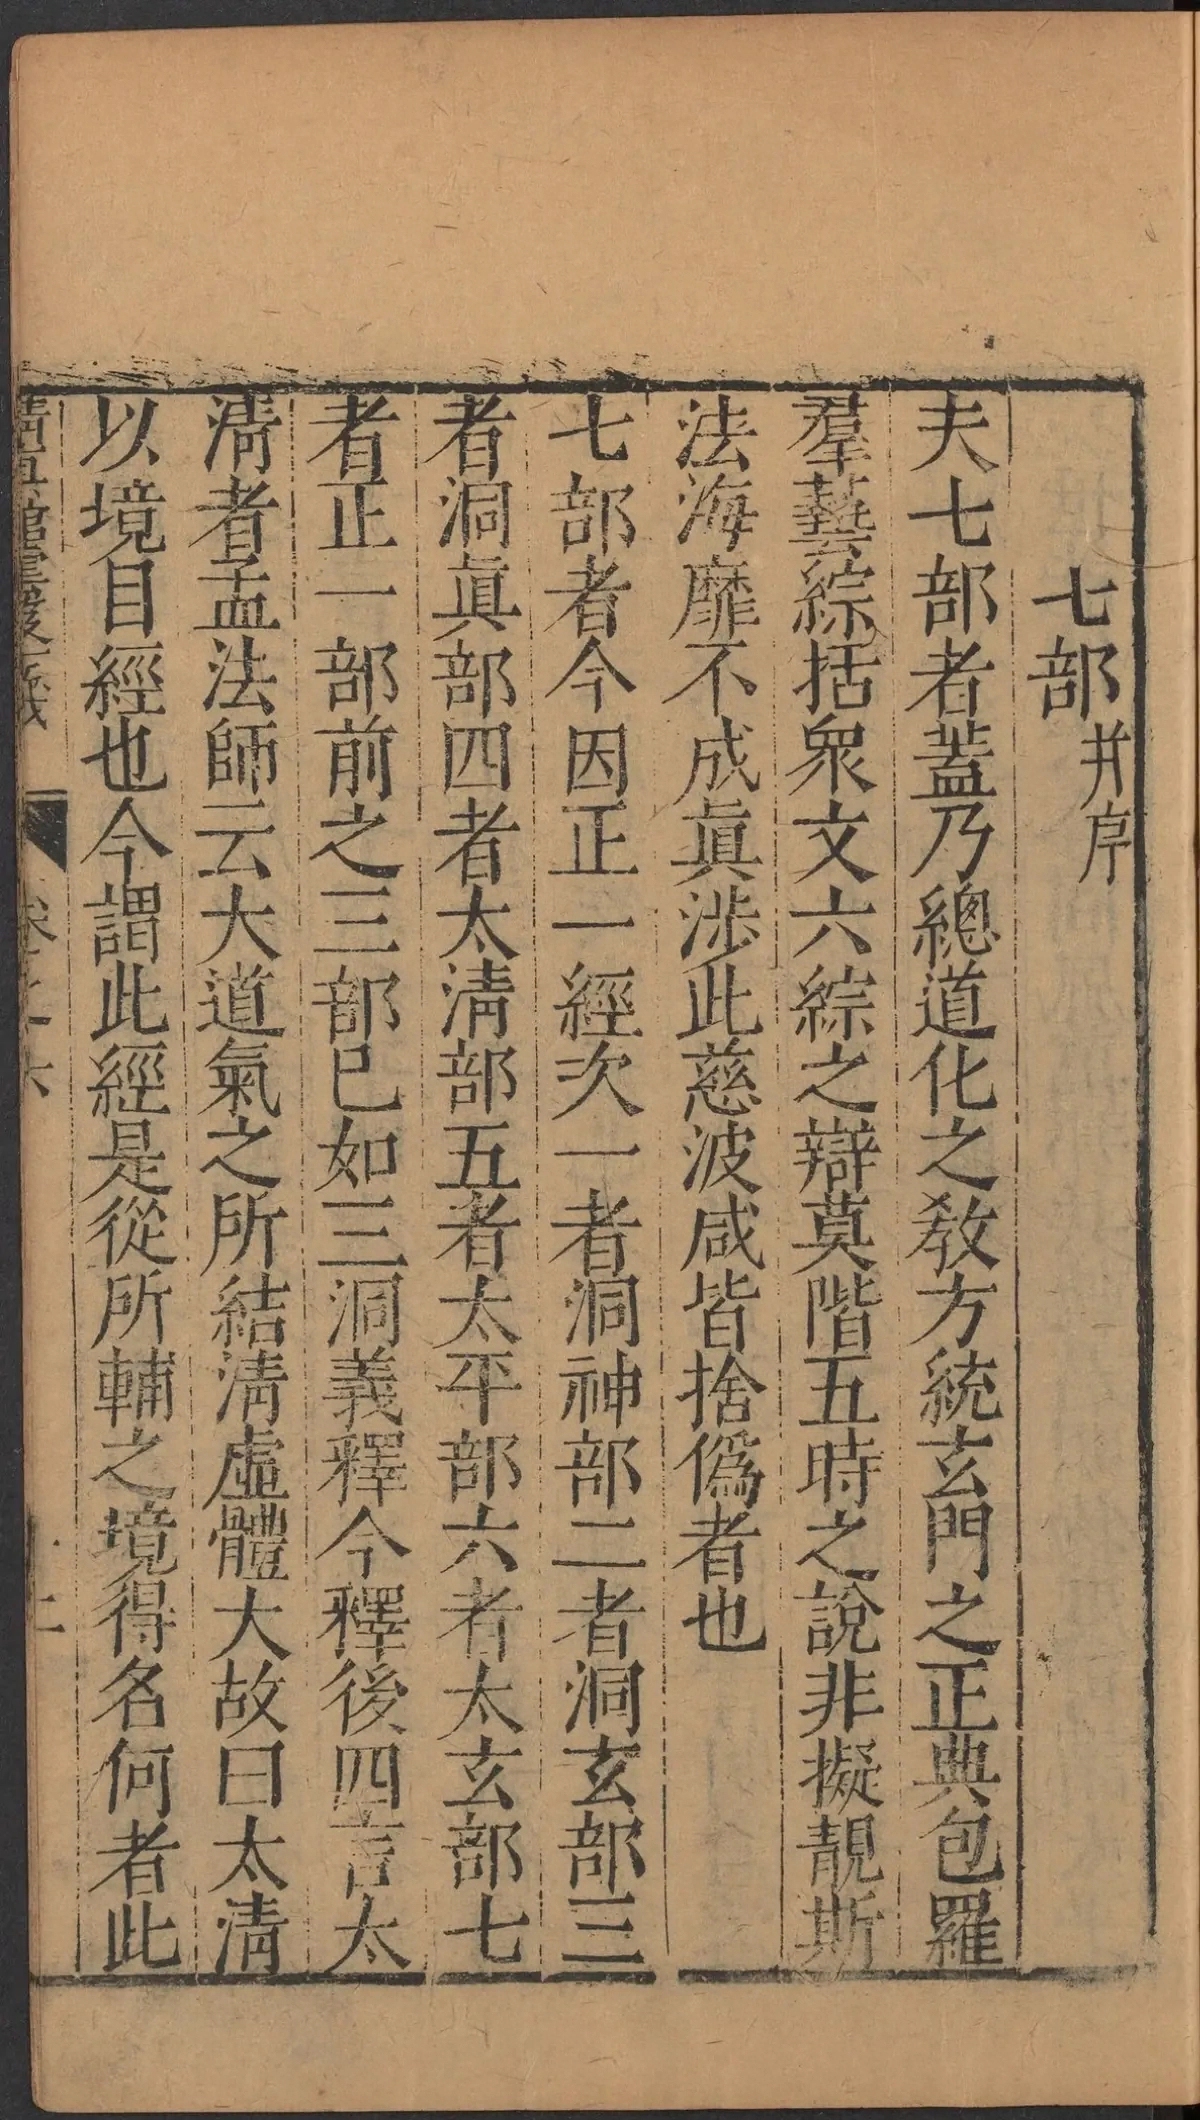 七部并序
夫七部者蓋乃總道化之教方統玄門之正典包羅
羣藝綜括衆文六綜之辯莫階五時之說非擬覩斯
法海靡不成眞涉此慈波咸皆捨僞者也
七部者今因正一經次一者洞神部二者洞玄部三
者洞眞部四者太淸部五者太平部六者太玄部七
者正一部前之三部已如三洞義釋今釋後四言太
淸者孟法師云大道氣之所結淸虛體大故曰太淸
以境目經也今謂此經是從所輔之境得名何者此